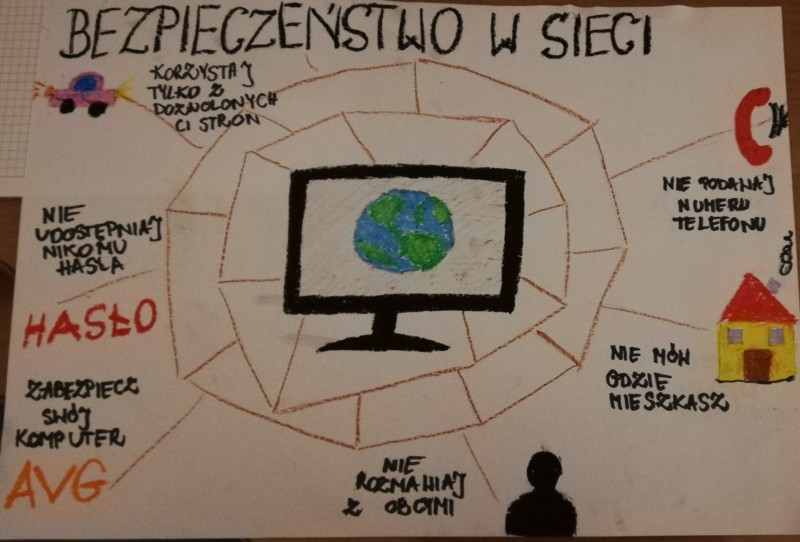 BEZPIECZEŃSTWO W SIECI
KORZYSTAJ
TYLKO Z
DOZWOLONYCH
CI STRON
NIE PODAWAJ
NUMERU
TELEFONU
NIE
UDOSTĘPNIAJ
NIKOMU
HASŁA
HASŁO
NIE MÓW
GDZIE
MIESZKASZ
ZABEZPIECZ
SWÓJ
KOMPUTER
AVG
NIE
ROZMAWIAJ
Z OBCYMI